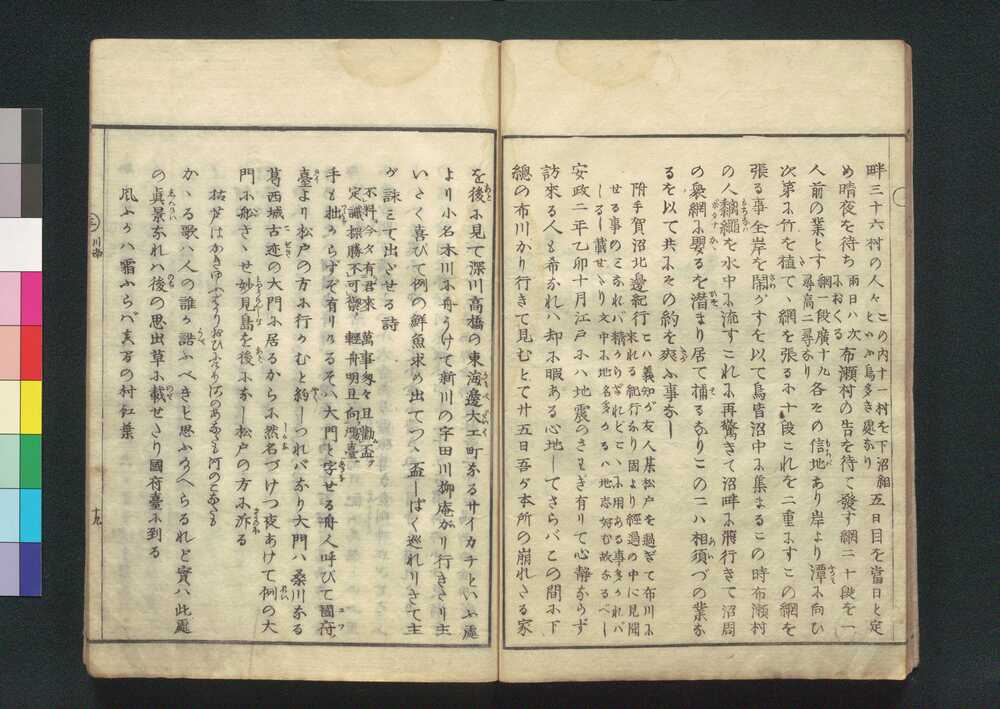 畔三十六村の人々といふ鳥多き處なり この内十一村を下沼組 五日目を當日と定
め晴夜を待ち 雨日ハ次におくる 布瀬村の告を待て發す網二十段を一
人前の業とす 網一段廣十九尋高二尋なり 各その信地あり岸より潭に向ひ
次第に竹を植て網を張るに十段これを二重にすこの網を
張る事全岸を閙がすを以て鳥皆沼中に集まるこの時布瀬村
の人黐繩を水中に流すこれに再驚きて沼畔に飛行きて沼周
の裊網に嬰るを潜まり居て捕るなりこの二ハ相須づの業な
るを以て共にその約を爽ふ事なし
附手賀沼北邊紀行 こハ義知が友人某松戸を過ぎて布川に
来れる紀行なり因より經過の中に見聞
せる事のミなれバ精からざれどこハに用ある事多かれバ
しるし載せたり文中に地名多かるハ地志好む故なるべし
安政二年乙卯十月江戸にハ地震のさわぎ有りて心静ならず
訪來る人も希なれハ却に暇ある心地してさらバこの間に下
總の布川がり行きて見むとて廿五日吾が本所の崩れたる家
を後に見て深川高橋の東海邊大工町なるサイカチといふ處
より小名木川に舟うけて新川の字田川柳庵がり行きたり主
いたく喜びて例の鮮魚求め出てつゝ盃しばく巡れりさて主
が詠ミて出ださせる詩
不料今夕有君來 萬事象々且勸盃
定識探勝不可禦 輕舟明且向鴻臺
手も拙からずぞ有りけるそハ大門と字せる舟人呼びて國府
臺より松戸の方に行かむと約しつれバなり大門ハ桑川なる
葛西城古迹の大門に居るからに然名づけつ夜あけて例の大
門に船さゝせ妙見島を後になし松戸の方に泝る
かゝる歌ハ人の誰か諾ふべきと思ふめへらるれど實ハ此處
の眞景なれハ後の思出草に載せたり國府臺に到る
凩ふかハ霜ふらバ眞萬の村紅葉
川
十九